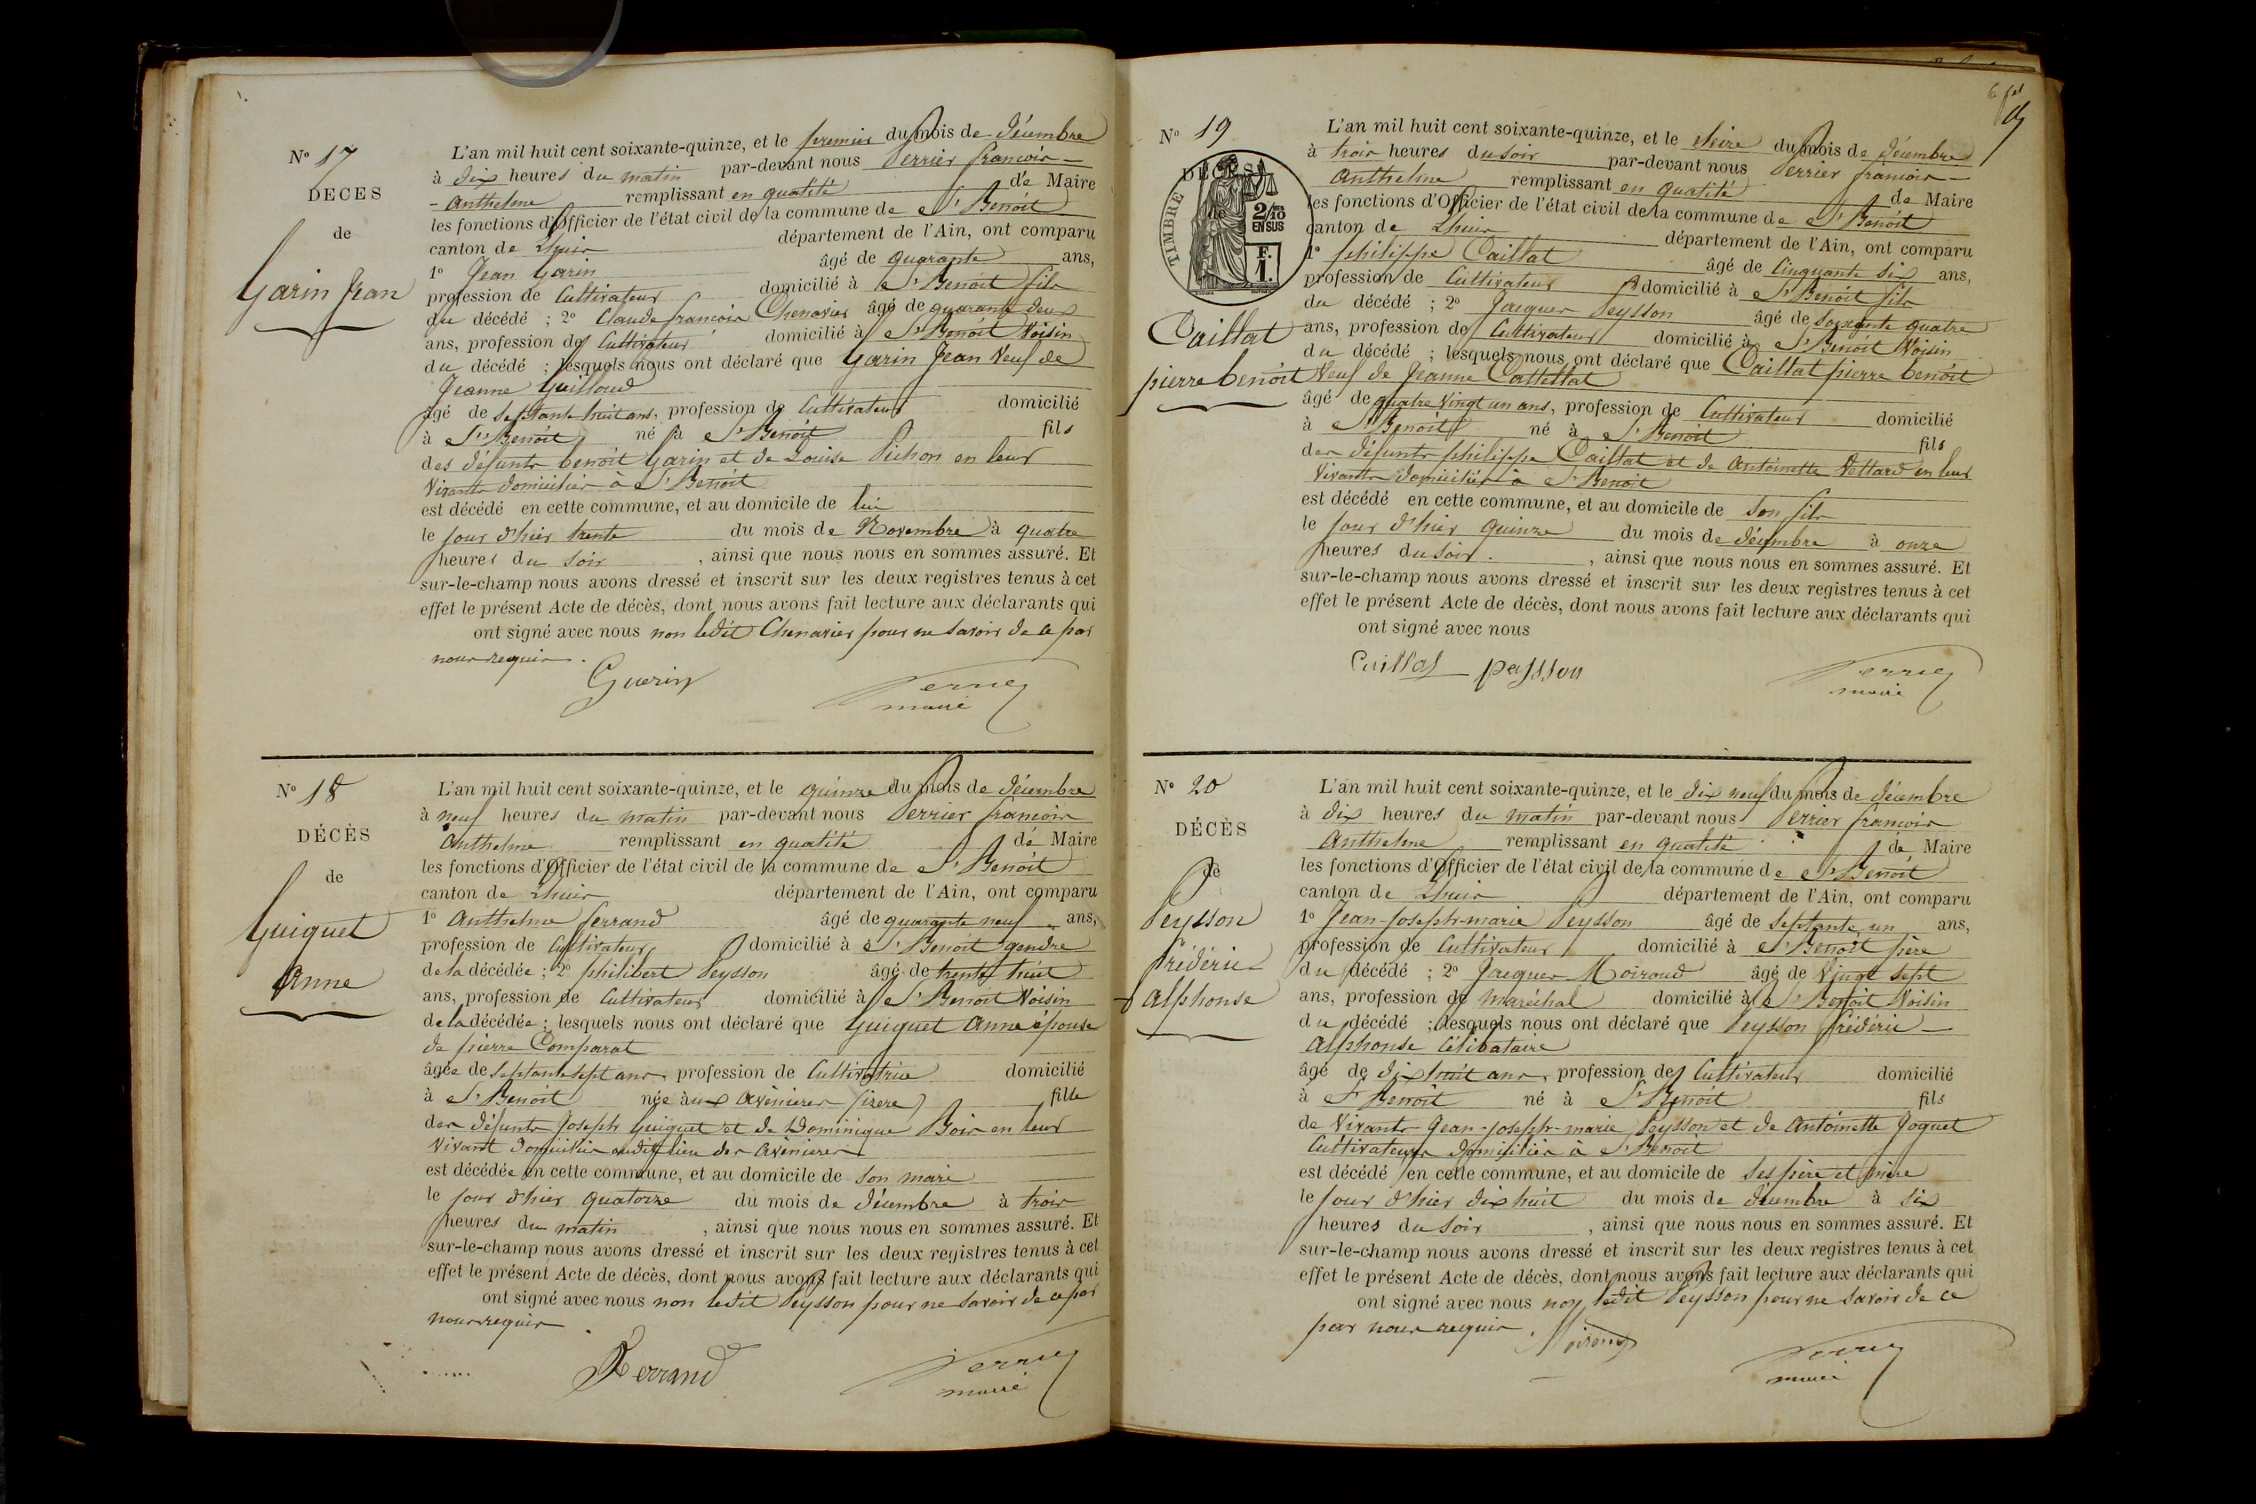 N° 17
DÉCÈS
de
Garin Jean
L'an mil huit cent soixante-quinze, et le premier du mois de décembre
à dix heures du matin par-devant nous Perrier francois-
-anthelme remplissant en qualité de Maire
les fonctions d'Officier de l'état civil de la commune de St Benoît
canton de Lhuis département de l'Ain, ont comparu
1° Jean Garin âgé de quarante ans,
profession de Cultivateur domicilié à St Benoît fils
du décédé ; 2° Claude francois Chenavier âgé de quarante deux
ans, profession de Cultivateur domicilié à St Benoît Voisin
du décédé ; lesquels nous ont déclaré que Garin Jean Veuf de
Jeanne Guilloud
âgé de septante huit ans, profession de Cultivateur domicilié
à St Benoît né à St Benoît fils
des défunts benoît Garin et de Louise Pichon en leur
Vivants domiciliés à St Benoît
est décédé en cette commune, et au domicile de lui
le jour d'hier trente du mois de Novembre à quatre
heures du soir , ainsi que nous nous en sommes assuré. Et
sur-le-champ nous avons dressé et inscrit sur les deux registres tenus à cet
effet le présent Acte de décès, dont nous avons fait lecture aux déclarants qui
ont signé avec nous non ledit Chenavier pour ne savoir de ce par
nous requis.
Guerin Perrier
maire
N° 18
DÉCÈS
de
Guiguet
Anne
L'an mil huit cent soixante-quinze, et le quinze du mois de décembre
à neuf heures du matin par-devant nous Perrier francois
Anthelme remplissant en qualité de Maire
les fonctions d'Officier de l'état civil de la commune de St Benoît
canton de Lhuis département de l'Ain, ont comparu
1° Anthelme ferrand âgé de quarante neuf ans,
profession de Cultivateur domicilié à St Benoît gendre
de la décédée ; 2° philibert Peysson âgé de trente huit
ans, profession de Cultivateur domicilié à St Benoît Voisin
de la décédée ; lesquels nous ont déclaré que Guiguet Anne épouse
de pierre Comparat
âgée de septante sept ans, profession de Cultivatrice domicilié
à St Benoît née aux Avenieres (isere) fille
des défunts Joseph Guiguet et de Dominique Bois en leur
Vivant domiciliés audit lieu des Avenieres
est décédée en cette commune, et au domicile de son mari
le jour d'hier quatorze du mois de décembre à trois
heures du matin , ainsi que nous nous en sommes assuré. Et
sur-le-champ nous avons dressé et inscrit sur les deux registres tenus à cet
effet le présent Acte de décès, dont nous avons fait lecture aux déclarants qui
ont signé avec nous non ledit Peysson pour ne savoir de ce par
nous requis
Ferrand Perrier
maire
N° 19
DÉCÈS
de
TIMBRE
2/10
EN SUS
F.
1.
Caillat
pierre benoît
L'an mil huit cent soixante-quinze, et le seize du mois de décembre
à trois heures du soir par-devant nous Perrier francois-
anthelme remplissant en qualité de Maire
les fonctions d'Officier de l'état civil de la commune de St Benoît
canton de Lhuis département de l'Ain, ont comparu
1° philippe Caillat âgé de Cinquante six ans,
profession de Cultivateur domicilié à St Benoît fils
du décédé ; 2° Jacques Peysson âgé de soixante quatre
ans, profession de Cultivateur domicilié à St Benoît Voisin
du décédé ; lesquels nous ont déclaré que Caillat pierre benoît
Veuf de Jeanne Cattellat
âgé de quatre vingt un ans, profession de Cultivateur domicilié
à St Benoît né à St Benoît fils
des défunts philippe Caillat et de Antoinette Vettard en leur
Vivants domiciliés à St Benoît
est décédé en cette commune, et au domicile de son fils
le jour d'hier quinze du mois de décembre à onze
heures du soir. , ainsi que nous nous en sommes assuré. Et
sur-le-champ nous avons dressé et inscrit sur les deux registres tenus à cet
effet le présent Acte de décès, dont nous avons fait lecture aux déclarants qui
ont signé avec nous
Caillat peysson Perrier
maire
N° 20
DÉCÈS
de
Peysson
frédéric-
Alphonse
L'an mil huit cent soixante-quinze, et le dix neuf du mois de décembre
à dix heures du matin par-devant nous Perrier francois
Anthelme remplissant en qualité de Maire
les fonctions d'Officier de l'état civil de la commune de St Benoît
canton de Lhuis département de l'Ain, ont comparu
1° Jean-joseph-marie Peysson âgé de septante un ans,
profession de Cultivateur domicilié à St Benoît père
du décédé ; 2° Jacques Moiroud âgé de Vingt sept
ans, profession de maréchal domicilié à St Benoît Voisin
du décédé ; lesquels nous ont déclaré que Peysson frédéric-
Alphonse Célibataire
âgé de dix huit ans, profession de Cultivateur domicilié
à St Benoît né à St Benoît fils
de Vivants Jean-joseph-marie Peysson et de Antoinette Joguet
Cultivateurs domiciliés à St Benoît
est décédé en cette commune, et au domicile de ses père et mère
le jour d'hier dix huit du mois de décembre à six
heures du soir , ainsi que nous nous en sommes assuré. Et
sur-le-champ nous avons dressé et inscrit sur les deux registres tenus à cet
effet le présent Acte de décès, dont nous avons fait lecture aux déclarants qui
ont signé avec nous non ledit Peysson pour ne savoir de ce
par nous requis. Moiroud Perrier
maire